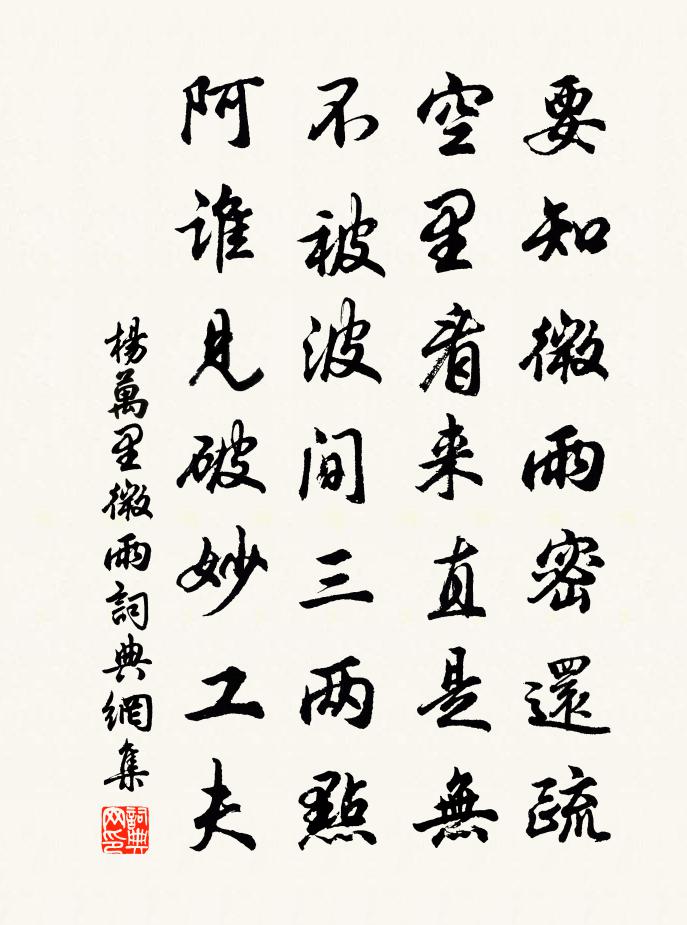 要知微雨密還疏
空里看来直是無
不被波间三两點
阿谁見破妙工夫
楊萬里微雨詞典網集
詞典网印